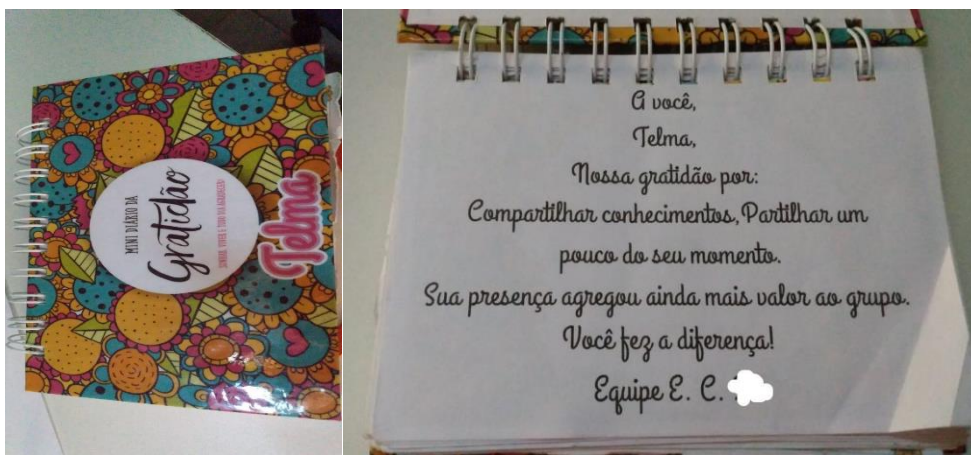 MINI DIÁRIO DA
Gratidão
SONHAR, VIVER E TODO DIA AGRADECER!
Telma
A você,
Telma,
Nossa gratidão por:
Compartilhar conhecimentos, Partilhar um
pouco do seu momento.
Sua presença agregou ainda mais valor ao grupo.
Você fez a diferença!
Equipe E. C.